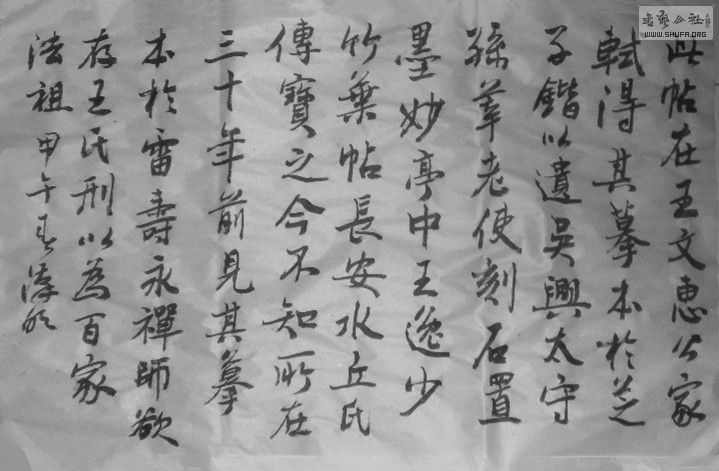 此帖在王文惠公家
軾得其摹本於芝
子鍇以遺吳興太守
孫莘老使刻石置
墨妙亭中王逸少
竹葉帖長安水丘氏
傳寶之今不知所在
三十年前見其摹
本於雷壽永禪師欲
存王氏刑以為百家
法祖甲午
書藝公社
WWW.SHUFA.ORG